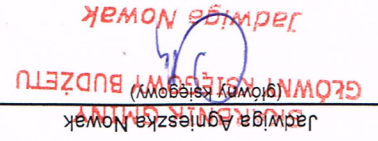 Jadwiga Agnieszka Nowak
SKARBNIK GMINY
(główny księgowy)
GŁÓWNY KSIĘGOWY BUDŻETU
Jadwiga Nowak